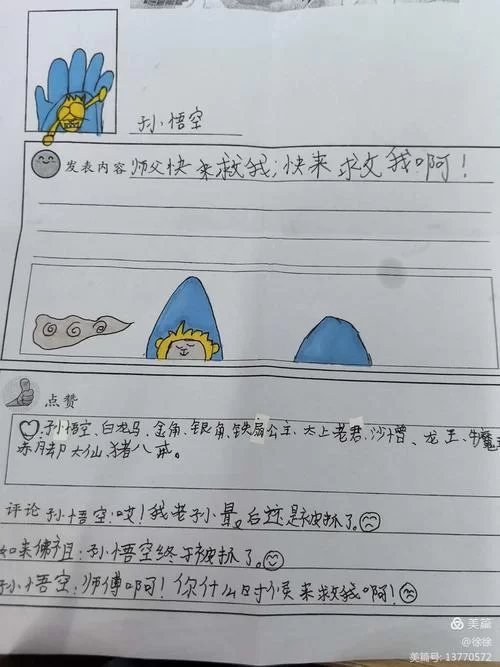 孙悟空
发表内容 师父快来救我;快来救我啊!
点赞
孙悟空、白龙马、金角、银角、铁扇公主、太上老君、沙僧、龙王、牛魔王
赤脚大仙、猪八戒。
评论 孙悟空:哎!我老孙最后还是被抓了。
如来佛祖:孙悟空终于被抓了。
孙悟空:师傅啊!你什么时候来救我啊!
美篇
@徐徐
美篇号:13770572